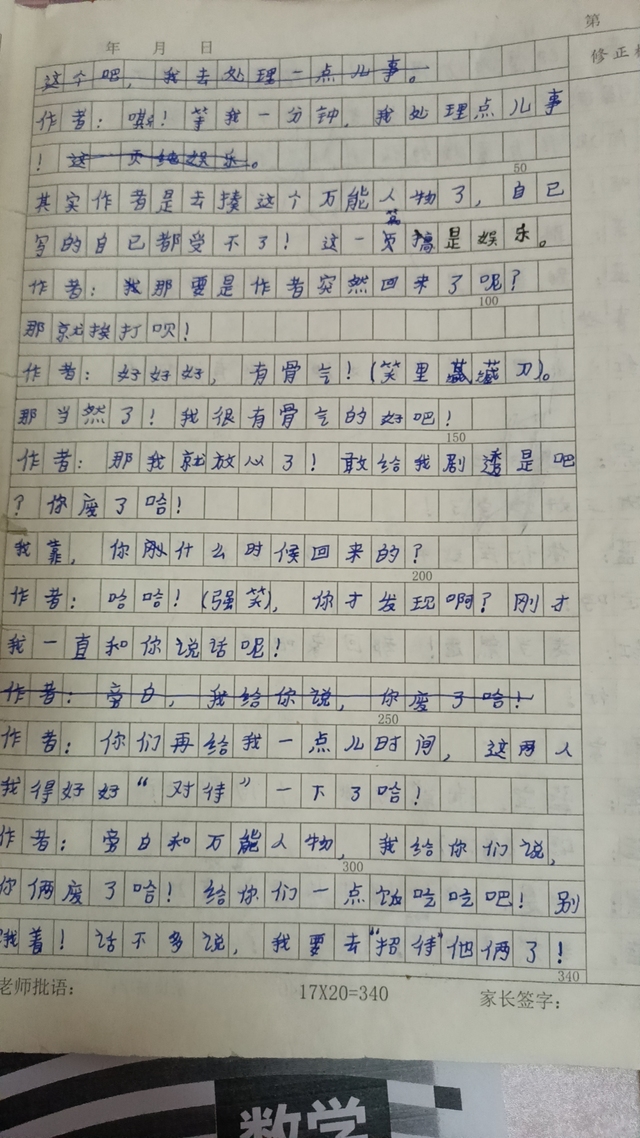 第
年 月 日
修正栏
这个吧，我去处理一点儿事。
作者：嘿！等我一分钟，我处理点儿事
！这一页纯娱乐。
50
其实作者是去揍这个万能人物了，自己
写的自己都受不了！这一页搞笑是娱乐。
作者：我那要是作者突然回来了呢？
100
那就挨打呗！
作者：好好好，有骨气！(笑里藏刀)。
那当然了！我很有骨气的好吧！
150
作者：那我就放心了！敢给我剧透是吧
？你废了哈！
我靠，你刚什么时候回来的？
200
作者：哈哈！(强笑)，你才发现啊？刚才
我一直和你说话呢！
作者：旁白，我给你说，你废了哈！
250
作者：你们再给我一点儿时间，这两人
我得好好“对待”一下了哈！
作者：旁白和万能人物，我给你们说，
300
你俩废了哈！给你们一点饭吃吃吧！别
饿着！话不多说，我要去“招待”他俩了！
340
老师批语：
17X20=340
家长签字：
数学